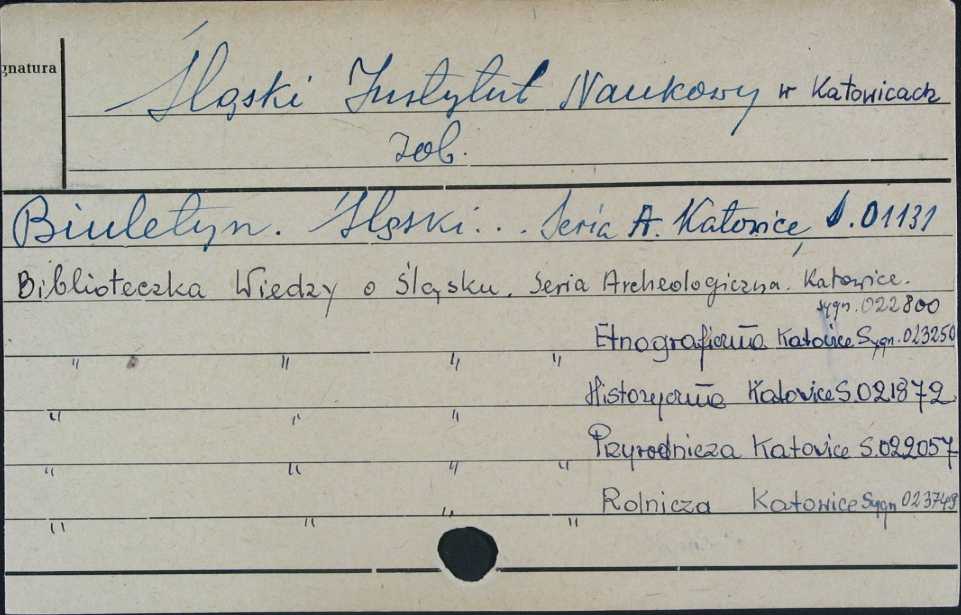 gnatura
Śląski Instytut Naukowy w Katowicach
zob.
Biuletyn. Śląski... Seria A. Katowice, S.01131
Biblioteczka Wiedzy o Śląsku. Seria Archeologiczna. Katowice.
sygn.022800
" " " " Etnograficzna Katowice Sygn.023250
" " " Historyczna Katowice S.021872
" " " " Przyrodnicza Katowice S.022057
" " " " Rolnicza Katowice Sygn 023749